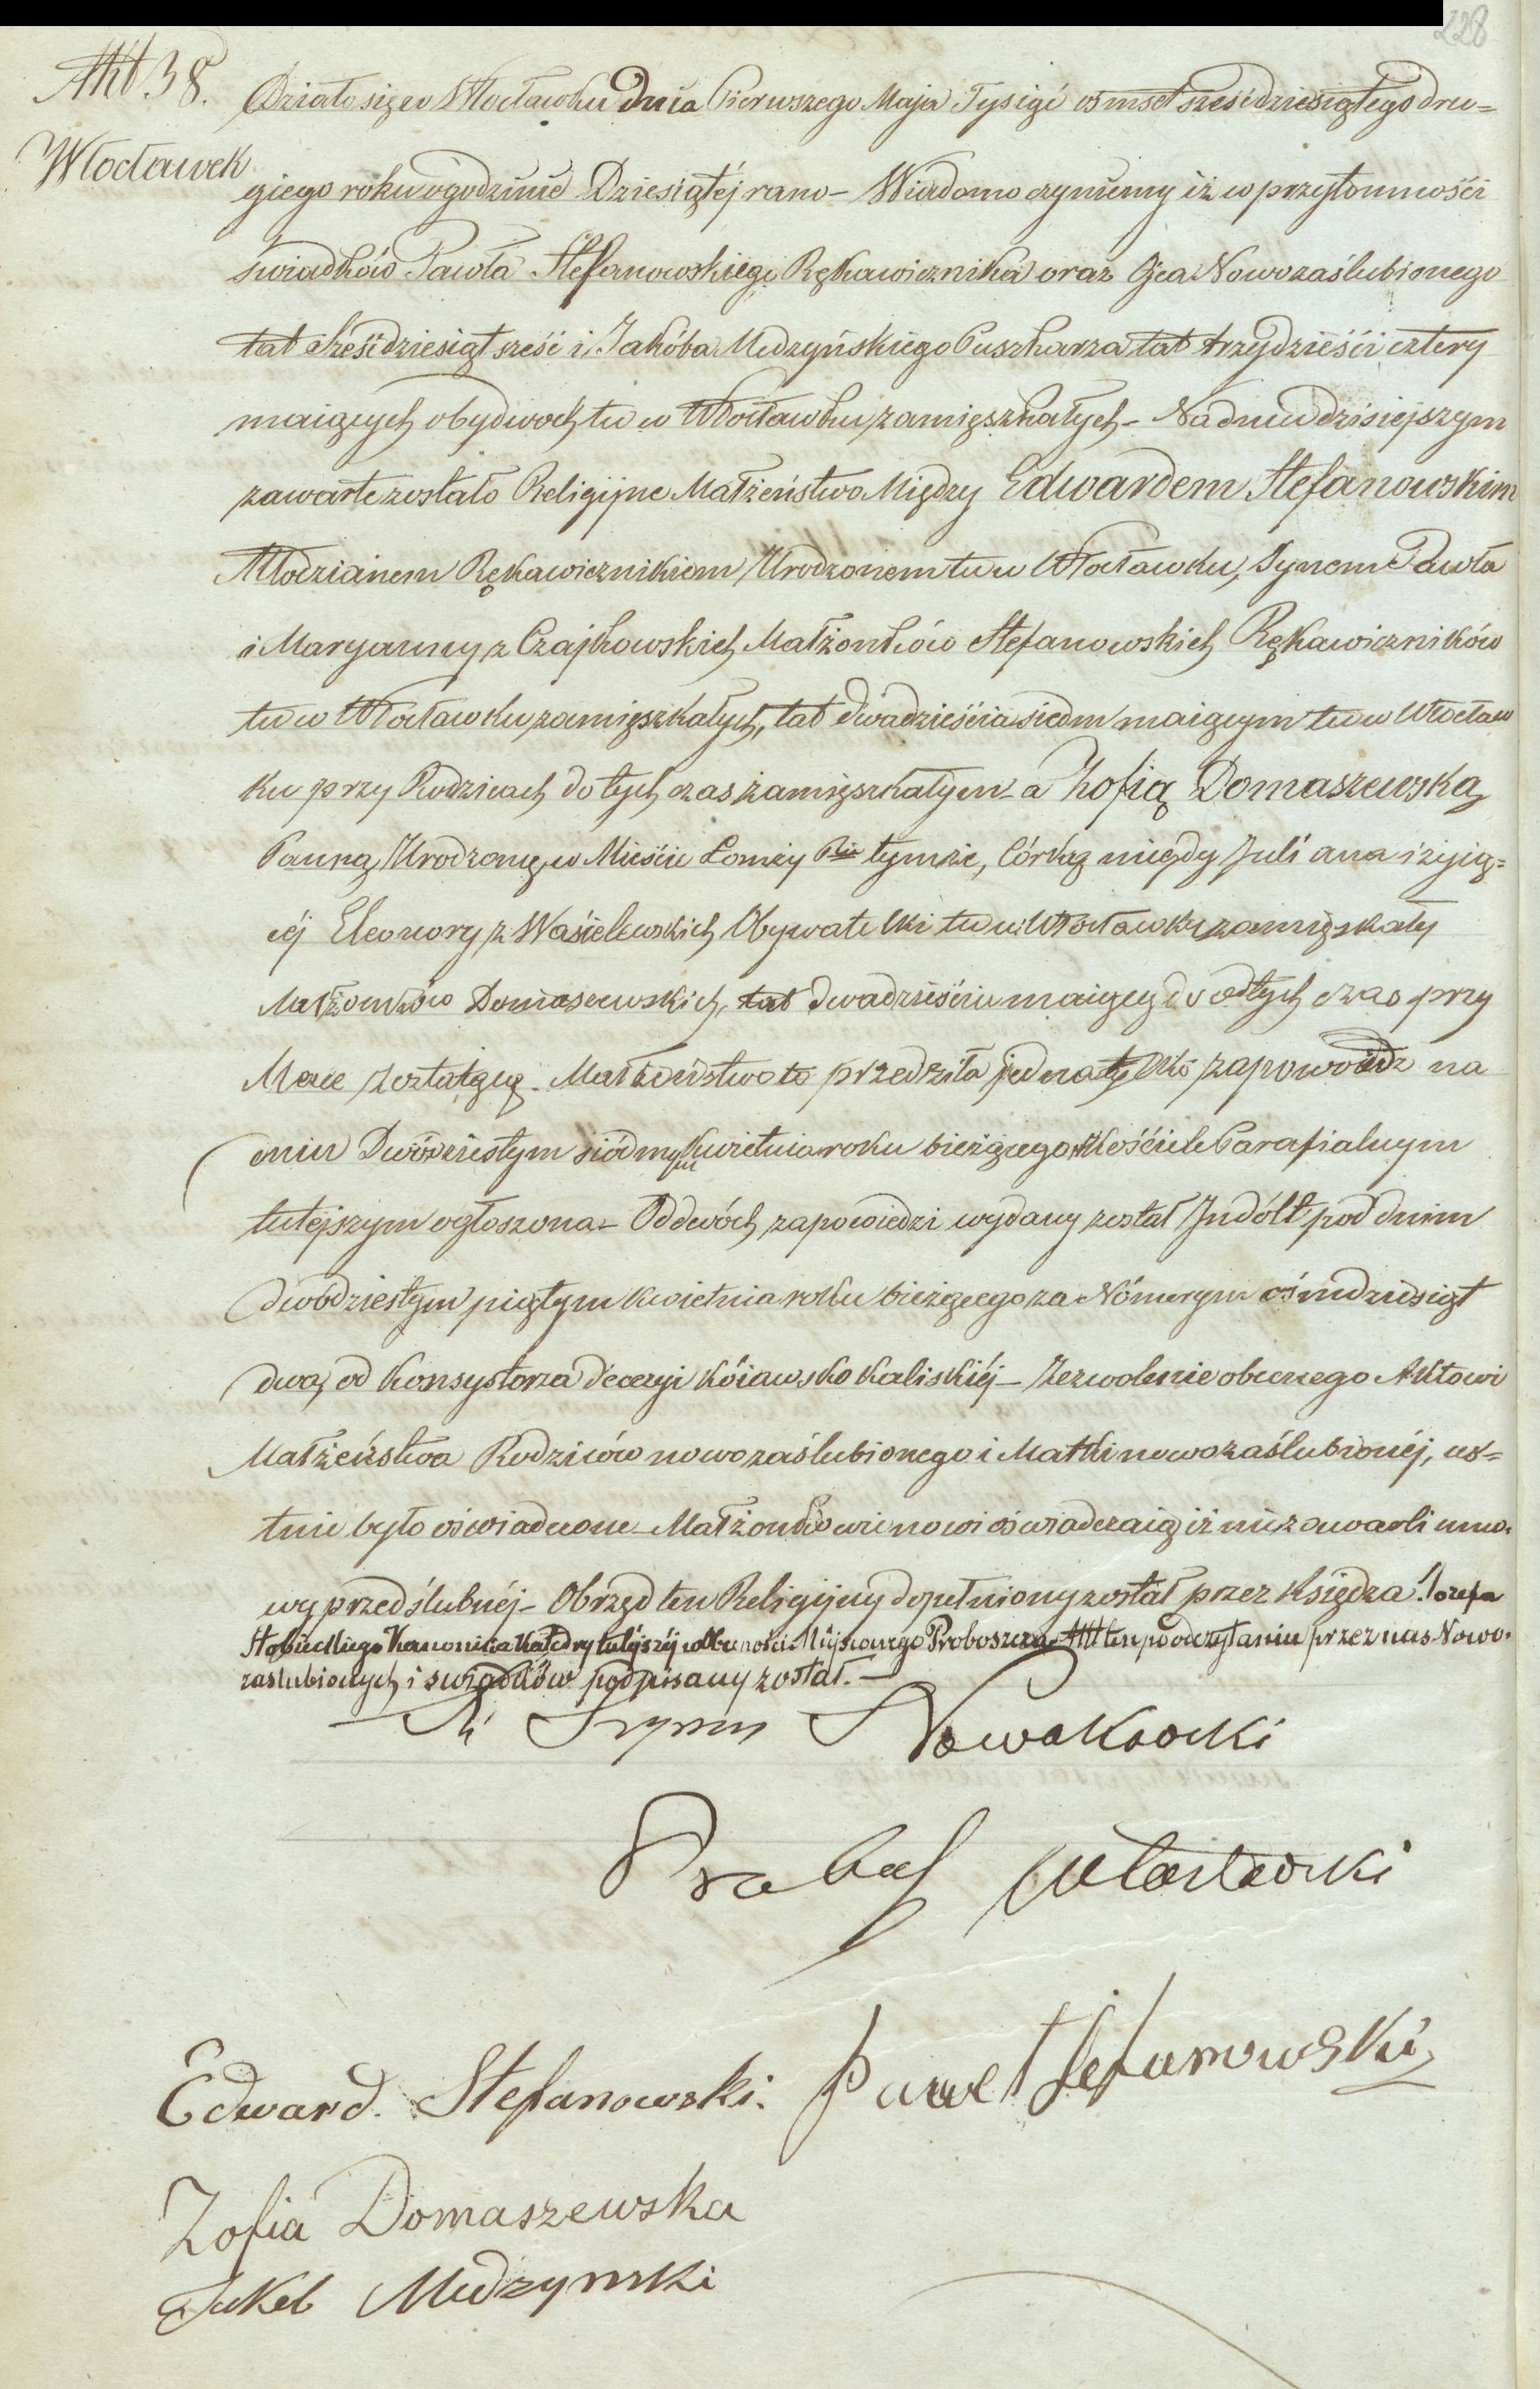 228
Akt 38.
Włocławek
Działo się w Włocławku dnia Pierwszego Maja Tysiąć ośmset sześćdziesiątego dru-
giego roku o godzinie Dziesiątéj rano – Wiadomo czyniemy iż w przytomności
świadków Pawła Stefanowskiego Rękawicznika oraz Ojca Nowozaślubionego
lat sześćdziesiąt sześć i Jakóba Medzyńskiego Puszkarza lat trzydzieści cztery
maiących obydwoch tu w Włocławku zamięszkałych – Na dniu dzisiejszym
zawarte zostało Religijne Małżeństwo Między Edwardem Stefanowskim
Młodzianem Rękawicznikiem Urodzonem tu w Włocławku, Synem Pawła
i Maryanny z Czajkowskich Małżonków Stefanowskich Rękawiczników
tu w Włocławku zamięszkałych, lat dwadzieścia siedm maiącym tu w Włocław
ku przy Rodzicach dotychczas zamięszkałym – a Zofią Domaszewską
Panną Urodzoną w Mieście Łomży tymże, Córką niegdy Juliana i żyią=
céj Eleonory z Wasielewskich Obywatelki tu w Włocławku zamięszkałéj
Małżonków Domaszewskich, lat dwadzieścia maiącą dodtychczas przy
Matce zostaiącą. Małżeństwo to przedziła jedna tylko zapowiedz na
dniu Dwódziestym siódmym Kwietnia roku bieżącego w Kościele Parafialnym
tutejszym ogłoszona – Od dwóch zapowiedzi wydany został Indólt pod dniem
dwódziestym piątym kwietnia roku bieżącego za Nómerym ośmdziesiąt
dwa, od Konsystorza Decezyi Kóiawsko Kaliskiéj – Zezwolenie obecnego Aktowi
Małżeństwa Rodziców nowozaślubionego i Matki nowozaślubionéj, us=
tnie było oświadczone – Małżonkowie nowi oświadczaią iż nie zawarli umo-
wy przedślubnéj – Obrząd ten Religijny dopełniony został przez Księdza Józefa
Słobieckiego Kanonika Katedry tutéjszéj w obecności Miejscowego Proboszcza – Akt ten po odczytaniu przez nas Nowo-
zaslubionych i swiadków podpisany został. –
Nowakowski
Edward. Stefanowski. Paweł Stefanowski
Zofia Domaszewska
Jakób Medzynski